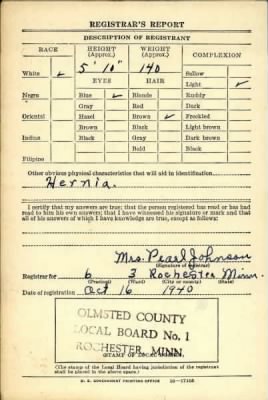 REGISTRAR'S REPORT
DESCRIPTION OF REGISTRANT
RACE HEIGHT (Approx.) WEIGHT (Approx.) COMPLEXION
White ✓ 5' 10" 140 Sallow
EYES HAIR Light ✓
Negro Blue ✓ Blonde Ruddy
Gray Red Dark
Oriental Hazel Brown ✓ Freckled
Brown Black Light brown
Indian Black Gray Dark brown
Bald Black
Filipino
Other obvious physical characteristics that will aid in identification
Hernia.
I certify that my answers are true; that the person registered has read or has had
read to him his own answers; that I have witnessed his signature or mark and that
all of his answers of which I have knowledge are true, except as follows:
Mrs. Pearl Johnson
(Signature of registrar)
Registrar for 6 3 Rochester Minn.
(Precinct) (Ward) (City or county) (State)
Date of registration Oct 16 1940
OLMSTED COUNTY
LOCAL BOARD No. 1
ROCHESTER, MINN.
(STAMP OF LOCAL BOARD)
(The stamp of the Local Board having jurisdiction of the registrant
shall be placed in the above space.)
U. S. GOVERNMENT PRINTING OFFICE 16—17105